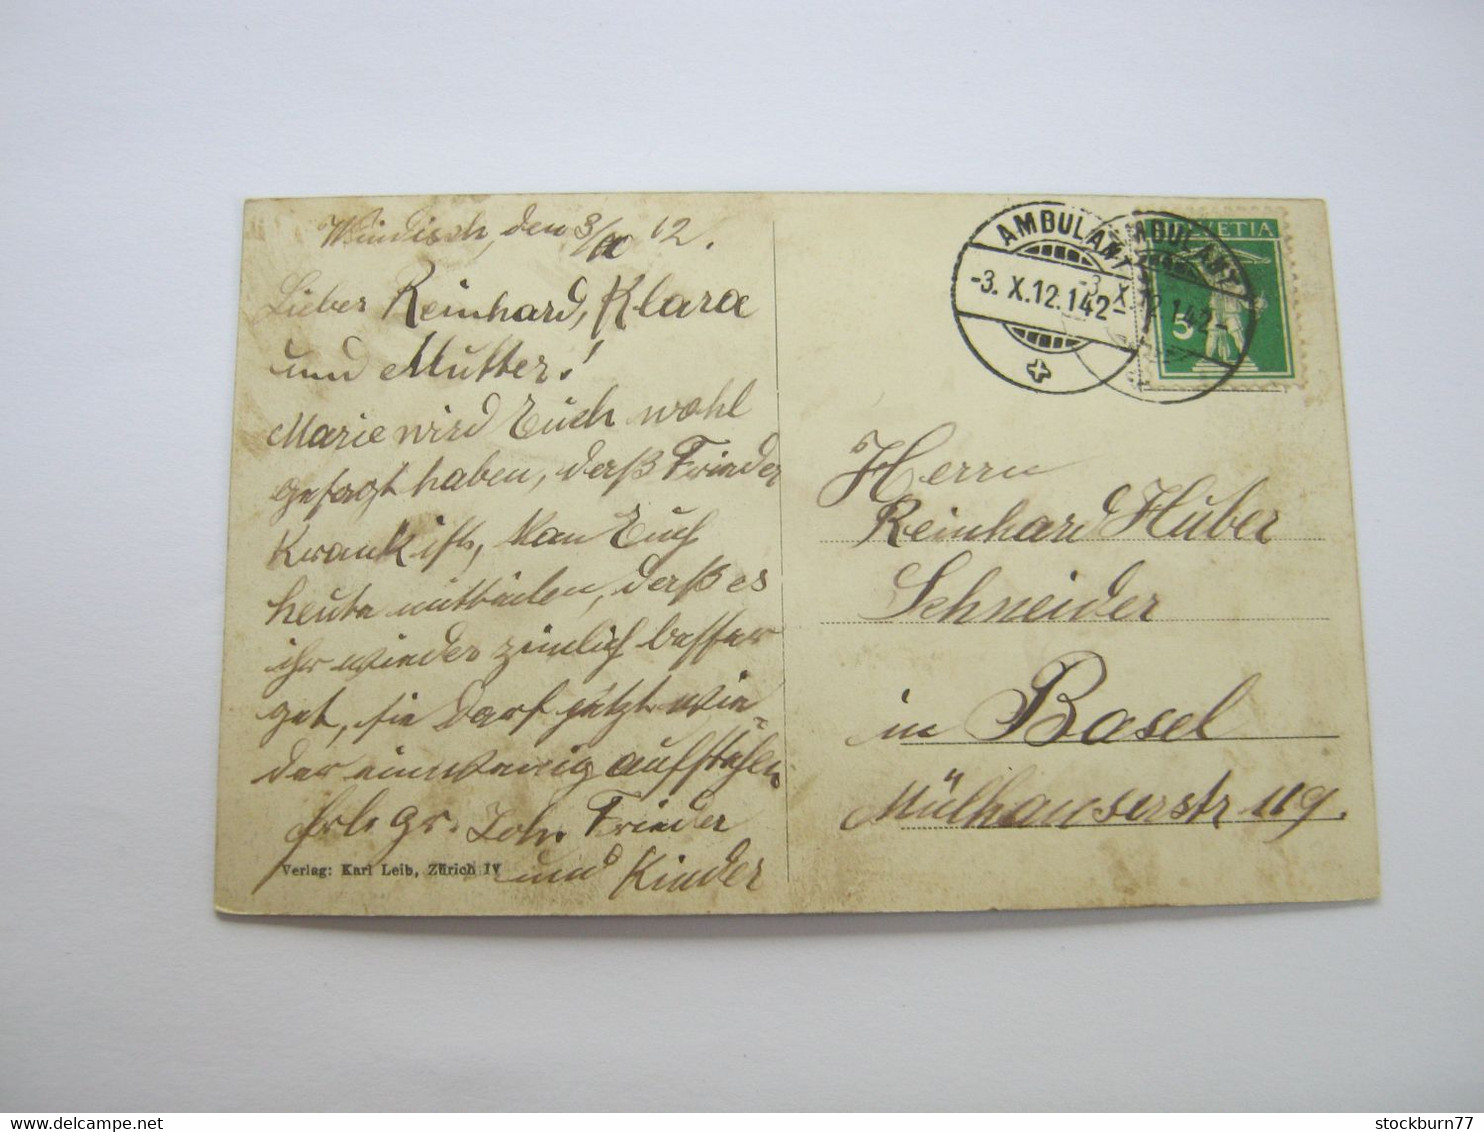 Windisch, den 3/X 12.
Lieber Reinhard, Klara
und Mutter!
Marie wird Euch wohl
gesagt haben, daß Frieda
krank ist, kan Euch
heute mitteilen, daß es
ihr wieder zimlich besser
get, sie darf jetzt wie-
der ein wenig aufstehen
Joh. Frieda
und Kinder
Verlag: Karl Leib, Zürich IV
AMBULANT
-3. X.12.142-
AMBULANT
-3. X.12.142-
HELVETIA
5
Herrn
Reinhard Huber
Schneider
in Basel
Mülhauserstr 119.
stockburn77